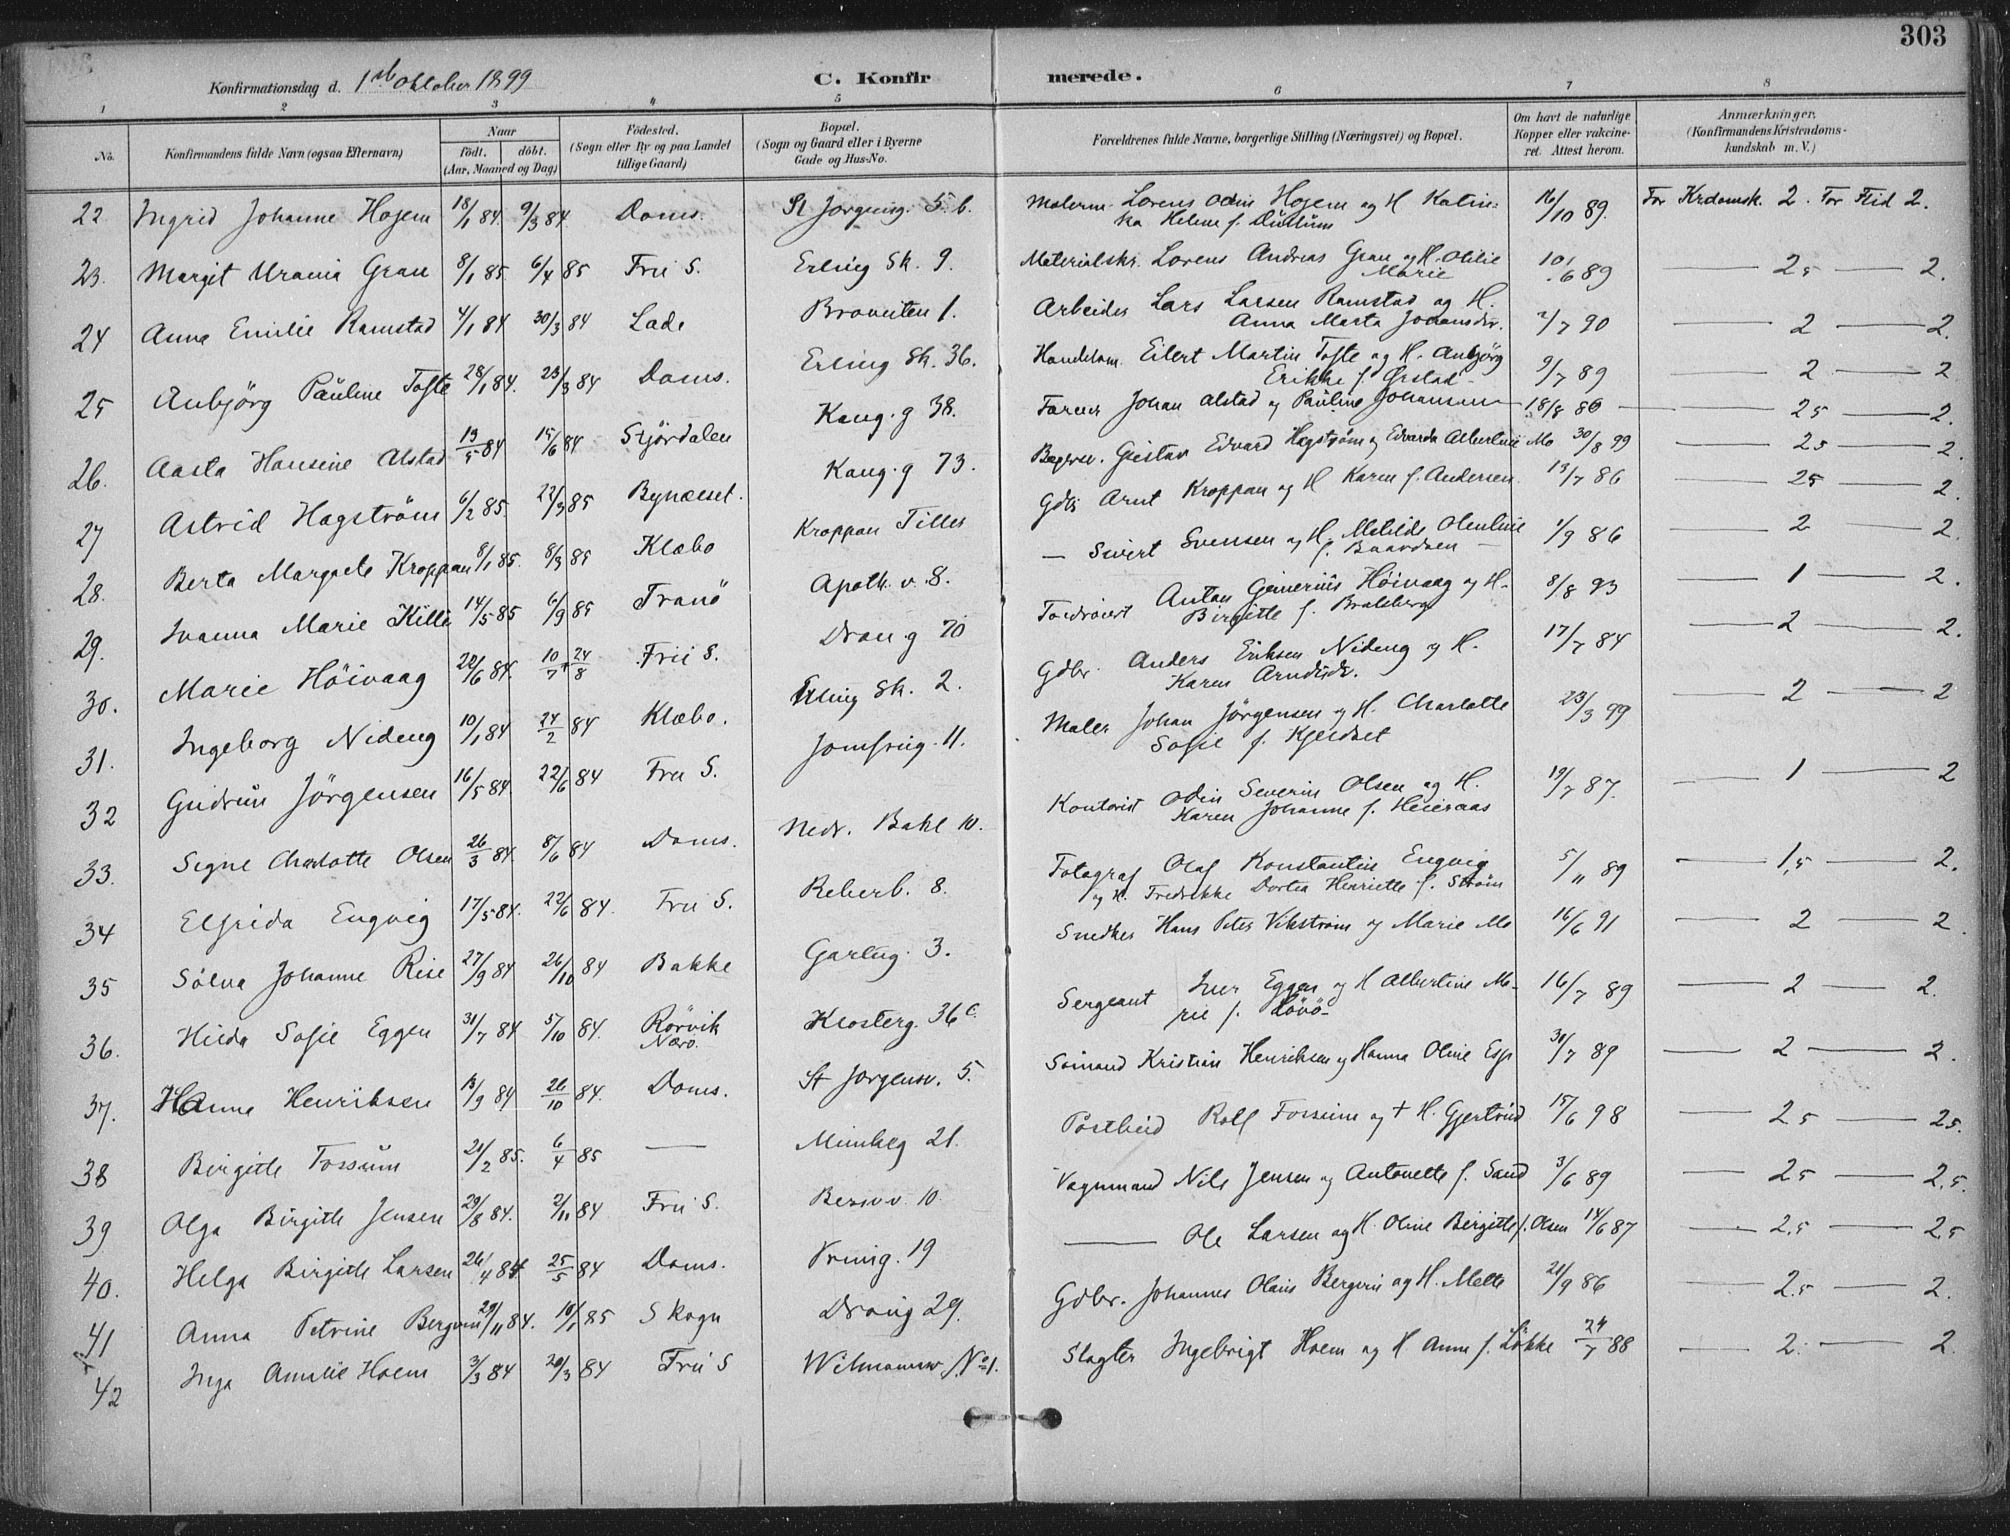 303
Konfirmationsdag d. 1ste Oktober 1899 C. Konfirmerede.
1 2 3 4 5 6 7 8
No. Konfirmandens fulde Navn (ogsaa Efternavn) Naar födt. döbt. (Aar, Maaned og Dag) Födested. (Sogn eller By og paa Landet tillige Gaard) Bopæl. (Sogn og Gaard eller i Byerne Gade og Hus-No. Forældrenes fulde Navne, borgerlige Stilling (Næringsvei) og Bopæl. Om havt de naturlige Kopper eller vakcineret. Attest herom. Anmærkninger. (Konfirmandens Kristendomskundskab m. V.)
22 Ingrid Johanne Hojem 18/1 84. 9/3 84. Doms. St Jørgensg. 5. b. Malerm. Lorens Odin Hojem og H Katinka Helene f. 16/10 89. For Krdomsk. 2. For Flid 2.
23. Margit Urania Gran 8/1 85. 6/4 85 Frü S. Erling Sk. 9. Materialskr. Lorens Andreas Gran og H. Otilie Marie 10/6 89 — 2,5 — 2.
24 Anne Emilie Ramstad 4/1 84 30/3 84 Lade 1. Arbeider Lars Larsen Ramstad og H. Anna Marta Johansdr. 2/7 90 — 2 — 2.
25 Anbjörg Pauline Tofte 28/1 84. 23/3 84 Doms. Erling Sk. 36. Handelsm. Eilert Martin Tofte og H. Anbjörg Erikke f. Örstad 9/7 89 — 2 — 2
26. Aasta Hansine Alstad 13/5 84 15/6 84 Stjördalen Kong. g 38. Farver Johan Alstad og Pauline Johansen 18/8 86 — 25 — 2.
27 Astrid Hagström 6/2 85. 22/3 85 Bynæset. Kong. g 73. Gustav Edvard Hagström og Edvarda Albertine Mo 30/8 99 — 25 — 2.
28. Berta Margrete Kroppan 8/1 85. 8/3 85 Klæbo Kroppan Tiller Gdbr Arnt Kroppan og H Karen f. Andersen 13/7 86 — 25 — 2.
29. Ivanna Marie Killi 14/5 85 6/9 85 Tranö Apoth. v. 8. — Sivert Svensen og H. Matilde Olentine f. Baardsen 1/9 86 — 2 — 2.
30. Marie Höivaag 22/6 84. 10/7 + 24/8 Frü S. Dron g 70 Anton Höivaag og H. Birgitte f. Bratsberg 8/8 93 — 1 — 2.
31. Ingeborg Nideng 10/1 84 24/2 84 Klæbo. Erling Sk. 2. Gdbr. Anders Eriksen Nideng og H. Karen Arndtsdr. 17/7 84 — 2 — 2.
32 Gudrun Jörgensen 16/5 84. 22/6 84 Frü S. Jomfrug. 11. Maler Johan Jörgensen og H. Charlotte Sofie f. Kjeldset 23/3 99 — 2 — 2
33. Signe Charlotte Olsen 26/3 84. 8/6 84 Doms. Nedr. Bakl 10. Kontorist Odin Severin Olsen og H. Karen Johanne f. Heieraas 19/7 87. — 1 — 2
34 Elfrida Engvig 17/5 84. 22/6 84. Frü S. Reberb. 8. Fotograf Olaf Konstantin Engvig og H. Fredrikke Dortea Henriette f. Ström 5/11 89 — 1,5 — 2.
35 Sölva Johanne Rise 27/9 84 26/10 84 Bakke Gartng. 3. Snedker Hans Peter Vikström og Marie Mo 16/6 91 — 2 — 2.
36. Hilda Sofie Eggen 31/7 84 5/10 84. Rörvik Nærö. Klosterg. 36 c. Sergeant Iver Eggen og H Albertine Marie f. Lövö 16/7 89 — 2 — 2.
37. Hanna Henriksen 13/9 84 26/10 84. Doms. St Jørgensv. 5. Sömand Kristian Henriksen og Hanna Oline Esp 30/7 89 — 2 — 2.
38 Birgitte Fossum 21/2 85. 6/4 85 — Munkeg 21. Postbud Rolf Fossum og + H. Gjertrud 15/6 98 — 25 — 25.
39 Olga Birgitte Jensen 29/8 84. 2/11 84 Frü S. Bersv. v. 10. Vognmand Nils Jensen og Antonette f. Sand 3/6 89 — 25 — 2,5.
40. Helga Birgitte Larsen 26/4 84 25/5 84 Doms. 19 — Ole Larsen og H. Oline Birgitte f. Olsen 14/6 87 — 2,5 — 25
41 Anna Petrine Bergvin 29/11 84. 10/1 85 Skogn Drong 29. Gdbr. Johannes Olaus Bergvin og H. Mette 21/9 86 — 2,5 — 2.
42 Inga Amalie Hoem 3/3 84 20/3 84 Frü S Wilmannsv No 1. Slagter Ingebrigt Hoem og H Anne f. Lökke 24/7 88 — 2. — 2.